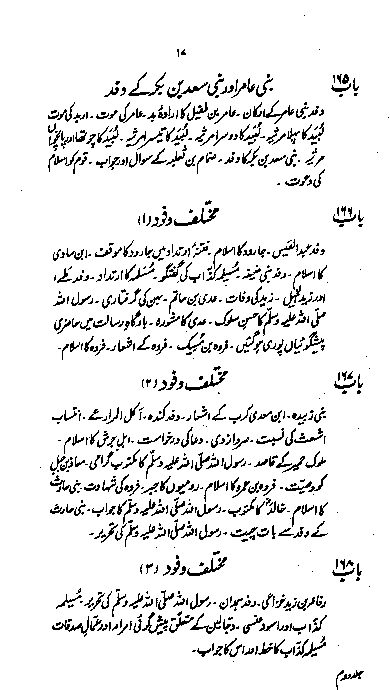 ۱۷
باب ۱۶۵
بنی عامر اور بنی سعد بن بکر کے وفد
وفد بنی عامر کے ارکان ۔ عامر بن طفیل کا ارادۂ بد ۔ عامر کی موت ۔ اربد کی موت
لبید کا پہلا مرثیہ ۔ لبید کا دوسرا مرثیہ ۔ لبید کا تیسرا مرثیہ ۔ لبید کا چوتھا اور پانچواں
مرثیہ ۔ بنی سعد بن بکر کا وفد ۔ ضمام بن ثعلبہ کے سوال اور جواب ۔ قوم کو اسلام
کی دعوت ۔
باب ۱۶۶
مختلف وفود (۱)
وفد عبدالقیس ۔ جارود کا اسلام ۔ فتنۂ ارتداد میں جارود کا موقف ۔ ابن ساوی
کا اسلام ۔ وفد بنی حنیفہ ۔ مسیلمہ کذاب کی گفتگو ۔ مسیلمہ کا ارتداد ۔ وفد طے
اور زید الخیل ۔ زید کی وفات ۔ عدی بن حاتم ۔ بہن کی گرفتاری ۔ رسول اللہ
صلی اللہ علیہ وسلم کا حسن سلوک ۔ عدی کا مشورہ ۔ بارگاہِ رسالت میں حاضری
پیشگوئیاں پوری ہوگئیں ۔ فروہ بن مسیک ۔ فروہ کے اشعار ۔ فروہ کا اسلام ۔
باب ۱۶۷
مختلف وفود (۲)
بنی زبید ۔ ابن معدی کرب کے اشعار ۔ وفد کندہ ۔ آکل المرار سے ۔ انتساب
اشعث کی نسبت ۔ صرد ازدی ۔ دعا کی درخواست ۔ اہل جرش کا اسلام ۔
ملوک حمیر کے قاصد ۔ رسول اللہ صلی اللہ علیہ وسلم کا مکتوب گرامی ۔ معاذ بن جبل
کو وصیت ۔ فروہ بن عمرو کا اسلام ۔ رومیوں کا جبر ۔ فروہ کی شہادت ۔ بنی حارث
کا اسلام ۔ خالدؓ کا مکتوب ۔ رسول اللہ صلی اللہ علیہ وسلم کا جواب ۔ بنی حارث
کے وفد سے بات چیت ۔ رسول اللہ صلی اللہ علیہ وسلم کی تحریر ۔
باب ۱۶۸
مختلف وفود (۳)
رفاعہ بن زید خزاعی ۔ وفد ہمدان ۔ رسول اللہ صلی اللہ علیہ وسلم کی تحریر ۔ مسیلمہ
کذاب اور اسود عنسی ۔ دجالین کے متعلق پیش گوئی ۔ امراء اور عمال صدقات
مسیلمہ کذاب کا خط اور اس کا جواب ۔
جلد دوم